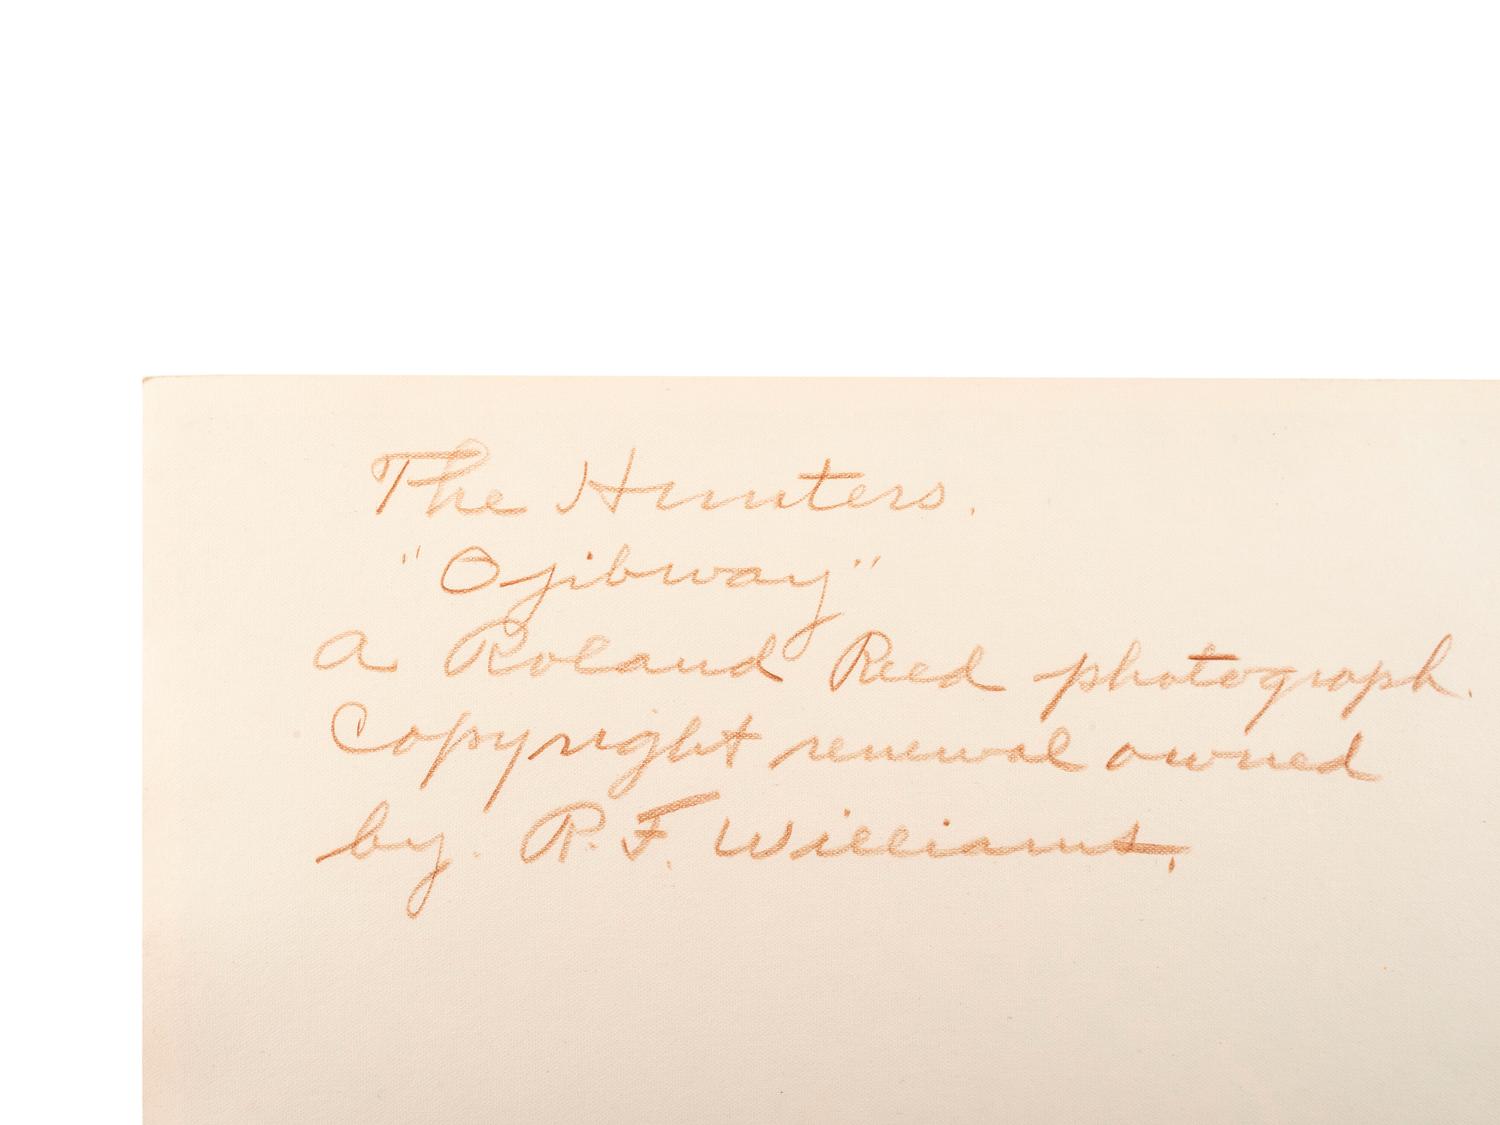 The Hunters.
"Ojibway"
A Roland Reed photograph.
Copyright renewal owned
by. R.F. Williams.